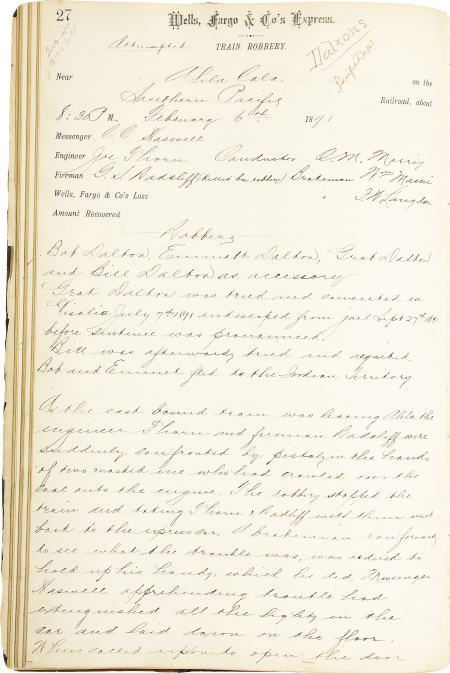 27
Wells, Fargo & Co's Express.
Attempted TRAIN ROBBERY.
Daltons
Near Alila Cala. on the
Southern Pacific Railroad, about
8:30 P M., February 6th 1891
Messenger C. C. Haswell
Engineer Joe Thorn Conductor O. M.
Fireman G. S. Radcliff, (killed in robbery) Brakeman Wm
Wells, Fargo & Co's Loss " F. W. Langdon
Amount Recovered
Robbers
Bob Dalton, Emmett Dalton, Grat Dalton
and Bill Dalton as accessory
Grat Dalton was tried and convicted in
Visalia July 7th 1891 and escaped from jail Sept 27th 1891
before sentence was pronounced.
Bill was afterwards tried and acquitted
Bob and Emmet fled to the Indian Territory
As the east bound train was leaving Alila the
engineer Thorn and fireman Radcliff were
suddenly confronted by pistols in the hands
of two masked men who had crawled over the
coal onto the engine. The robbers stopped the
train and taking Thorn & Radcliff with them went
back to the express car. A brakeman ran forward
to see what the trouble was, was ordered to
hold up his hands, which he did. Messenger
Haswell apprehending trouble had
extinguished all the lights in the
car and laid down on the floor.
When called upon to open the door